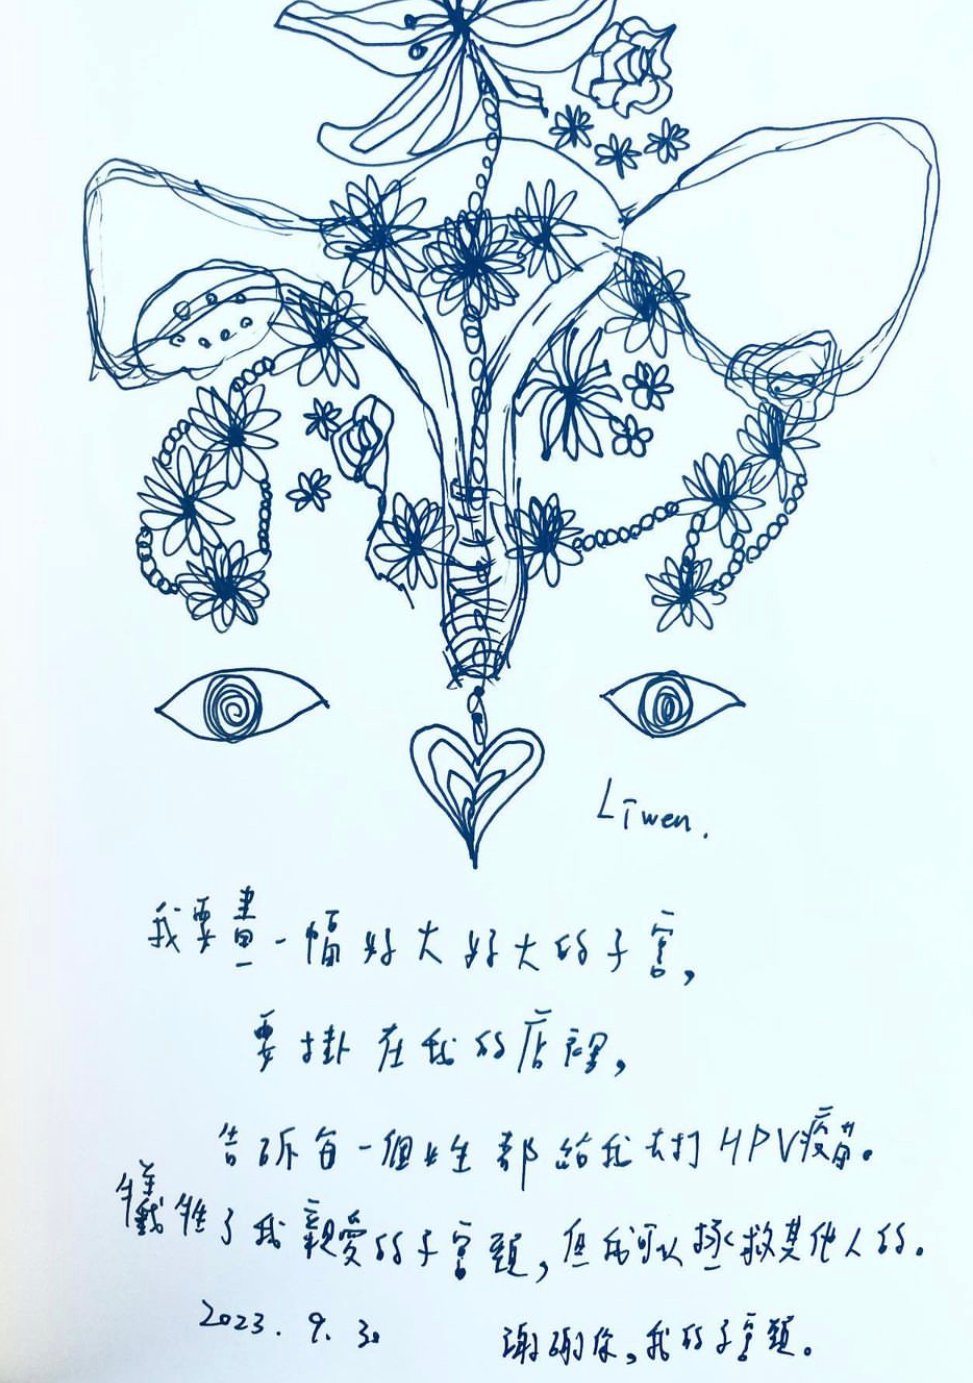 Liwen.
我要畫一幅好大好大的子宮，
要掛在我的店裡，
告訴每一個女生都給我去打HPV疫苗。
犧牲了我親愛的子宮頸，但我可以拯救其他人的。
2023.9.30
謝謝你，我的子宮頸。